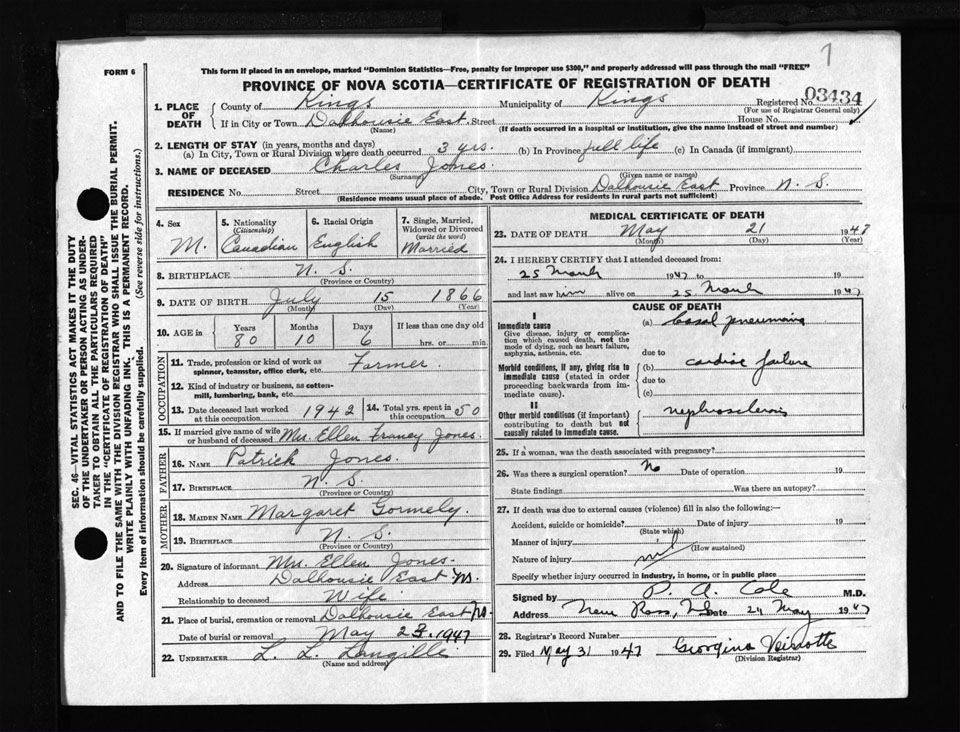 7
FORM 6
This form if placed in an envelope, marked "Dominion Statistics—Free, penalty for improper use $300," and properly addressed will pass through the mail "FREE"
PROVINCE OF NOVA SCOTIA—CERTIFICATE OF REGISTRATION OF DEATH
SEC. 46—VITAL STATISTICS ACT MAKES IT THE DUTY
OF THE UNDERTAKER OR PERSON ACTING AS UNDER-
TAKER TO OBTAIN ALL THE PARTICULARS REQUIRED
IN THE "CERTIFICATE OF REGISTRATION OF DEATH"
AND TO FILE THE SAME WITH THE DIVISION REGISTRAR WHO SHALL ISSUE THE BURIAL PERMIT.
WRITE PLAINLY WITH UNFADING INK. THIS IS A PERMANENT RECORD.
Every item of information should be carefully supplied. (See reverse side for instructions.)
1. PLACE OF DEATH County of Kings Municipality of Kings Registered No. 03434
(For use of Registrar General only)
If in City or Town Dalhousie East Street House No.
(Name) (If death occurred in a hospital or institution, give the name instead of street and number)
2. LENGTH OF STAY (in years, months and days)
(a) In City, Town or Rural Division where death occurred 3 yrs. (b) In Province full life (c) In Canada (if immigrant)
3. NAME OF DECEASED Charles Jones.
(Surname) (Given name or names)
RESIDENCE No. Street City, Town or Rural Division Dalhousie East Province N. S.
(Residence means usual place of abode. Post Office Address for residents in rural parts not sufficient)
4. Sex M.
5. Nationality (Citizenship) Canadian
6. Racial Origin English
7. Single, Married, Widowed or Divorced (write the word) Married
8. BIRTHPLACE N. S.
(Province or Country)
9. DATE OF BIRTH July 15 1866
(Month) (Day) (Year)
10. AGE IN Years Months Days If less than one day old
80 10 6 hrs. or min.
OCCUPATION
11. Trade, profession or kind of work as spinner, teamster, office clerk, etc. Farmer
12. Kind of industry or business, as cotton-mill, lumbering, bank, etc.
13. Date deceased last worked at this occupation 1942
14. Total yrs. spent in this occupation 50
15. If married give name of wife or husband of deceased Mrs. Ellen Francy Jones.
FATHER
16. NAME Patrick Jones.
17. BIRTHPLACE N. S.
(Province or Country)
MOTHER
18. MAIDEN NAME Margaret Gormely.
19. BIRTHPLACE N. S.
(Province or Country)
20. Signature of informant Mrs. Ellen Jones.
Address Dalhousie East
Relationship to deceased Wife
21. Place of burial, cremation or removal Dalhousie East
Date of burial or removal May 23, 1947
22. UNDERTAKER L. L. Langille
(Name and address)
MEDICAL CERTIFICATE OF DEATH
23. DATE OF DEATH May 21 1947
(Month) (Day) (Year)
24. I HEREBY CERTIFY that I attended deceased from:
25 March 1947 to 19
and last saw him alive on 25 March 1947
CAUSE OF DEATH
I
Immediate cause
Give disease, injury or complication which caused death, not the mode of dying, such as heart failure, asphyxia, asthenia, etc.
(a) basal pneumonia
due to
Morbid conditions, if any, giving rise to immediate cause (stated in order proceeding backwards from immediate cause).
(b) cardiac failure
due to
(c)
II
Other morbid conditions (if important) contributing to death but not causally related to immediate cause.
nephrosclerosis
25. If a woman, was the death associated with pregnancy?
26. Was there a surgical operation? No Date of operation 19
State findings Was there an autopsy?
27. If death was due to external causes (violence) fill in also the following:—
Accident, suicide or homicide? Date of injury 19
(State which)
Manner of injury
(How sustained)
Nature of injury nil
Specify whether injury occurred in industry, in home, or in public place
Signed by P. A. Cole M.D.
Address New Ross, NS Date 24 May 1947
28. Registrar's Record Number
29. Filed May 31 1947 Georgina
(Division Registrar)